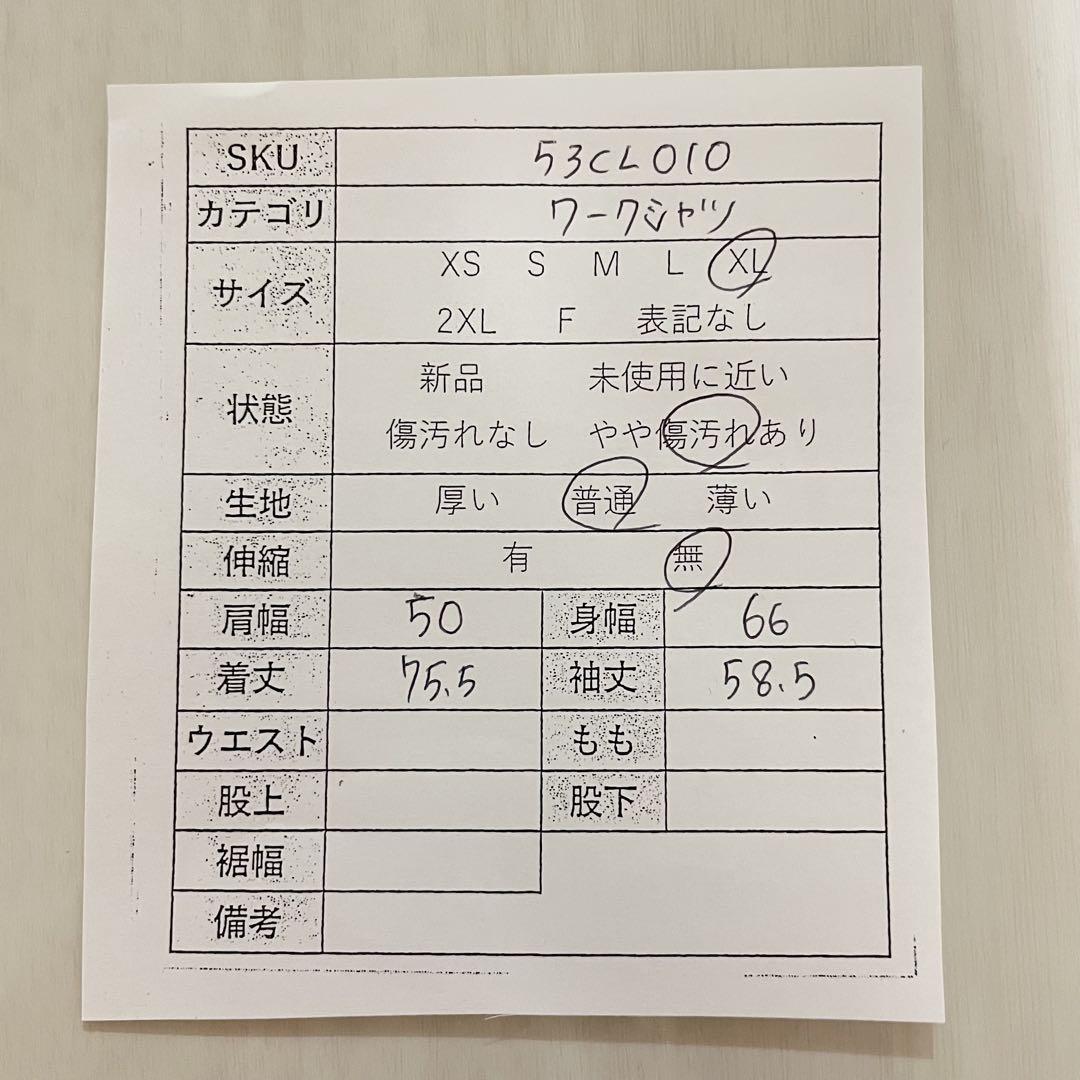 SKU 53CL010
カテゴリ ワークシャツ
サイズ XS S M L XL
2XL F 表記なし
状態 新品 未使用に近い
傷汚れなし やや傷汚れあり
生地 厚い 普通 薄い
伸縮 有 無
肩幅 50 身幅 66
着丈 75.5 袖丈 58.5
ウエスト もも
股上 股下
裾幅
備考